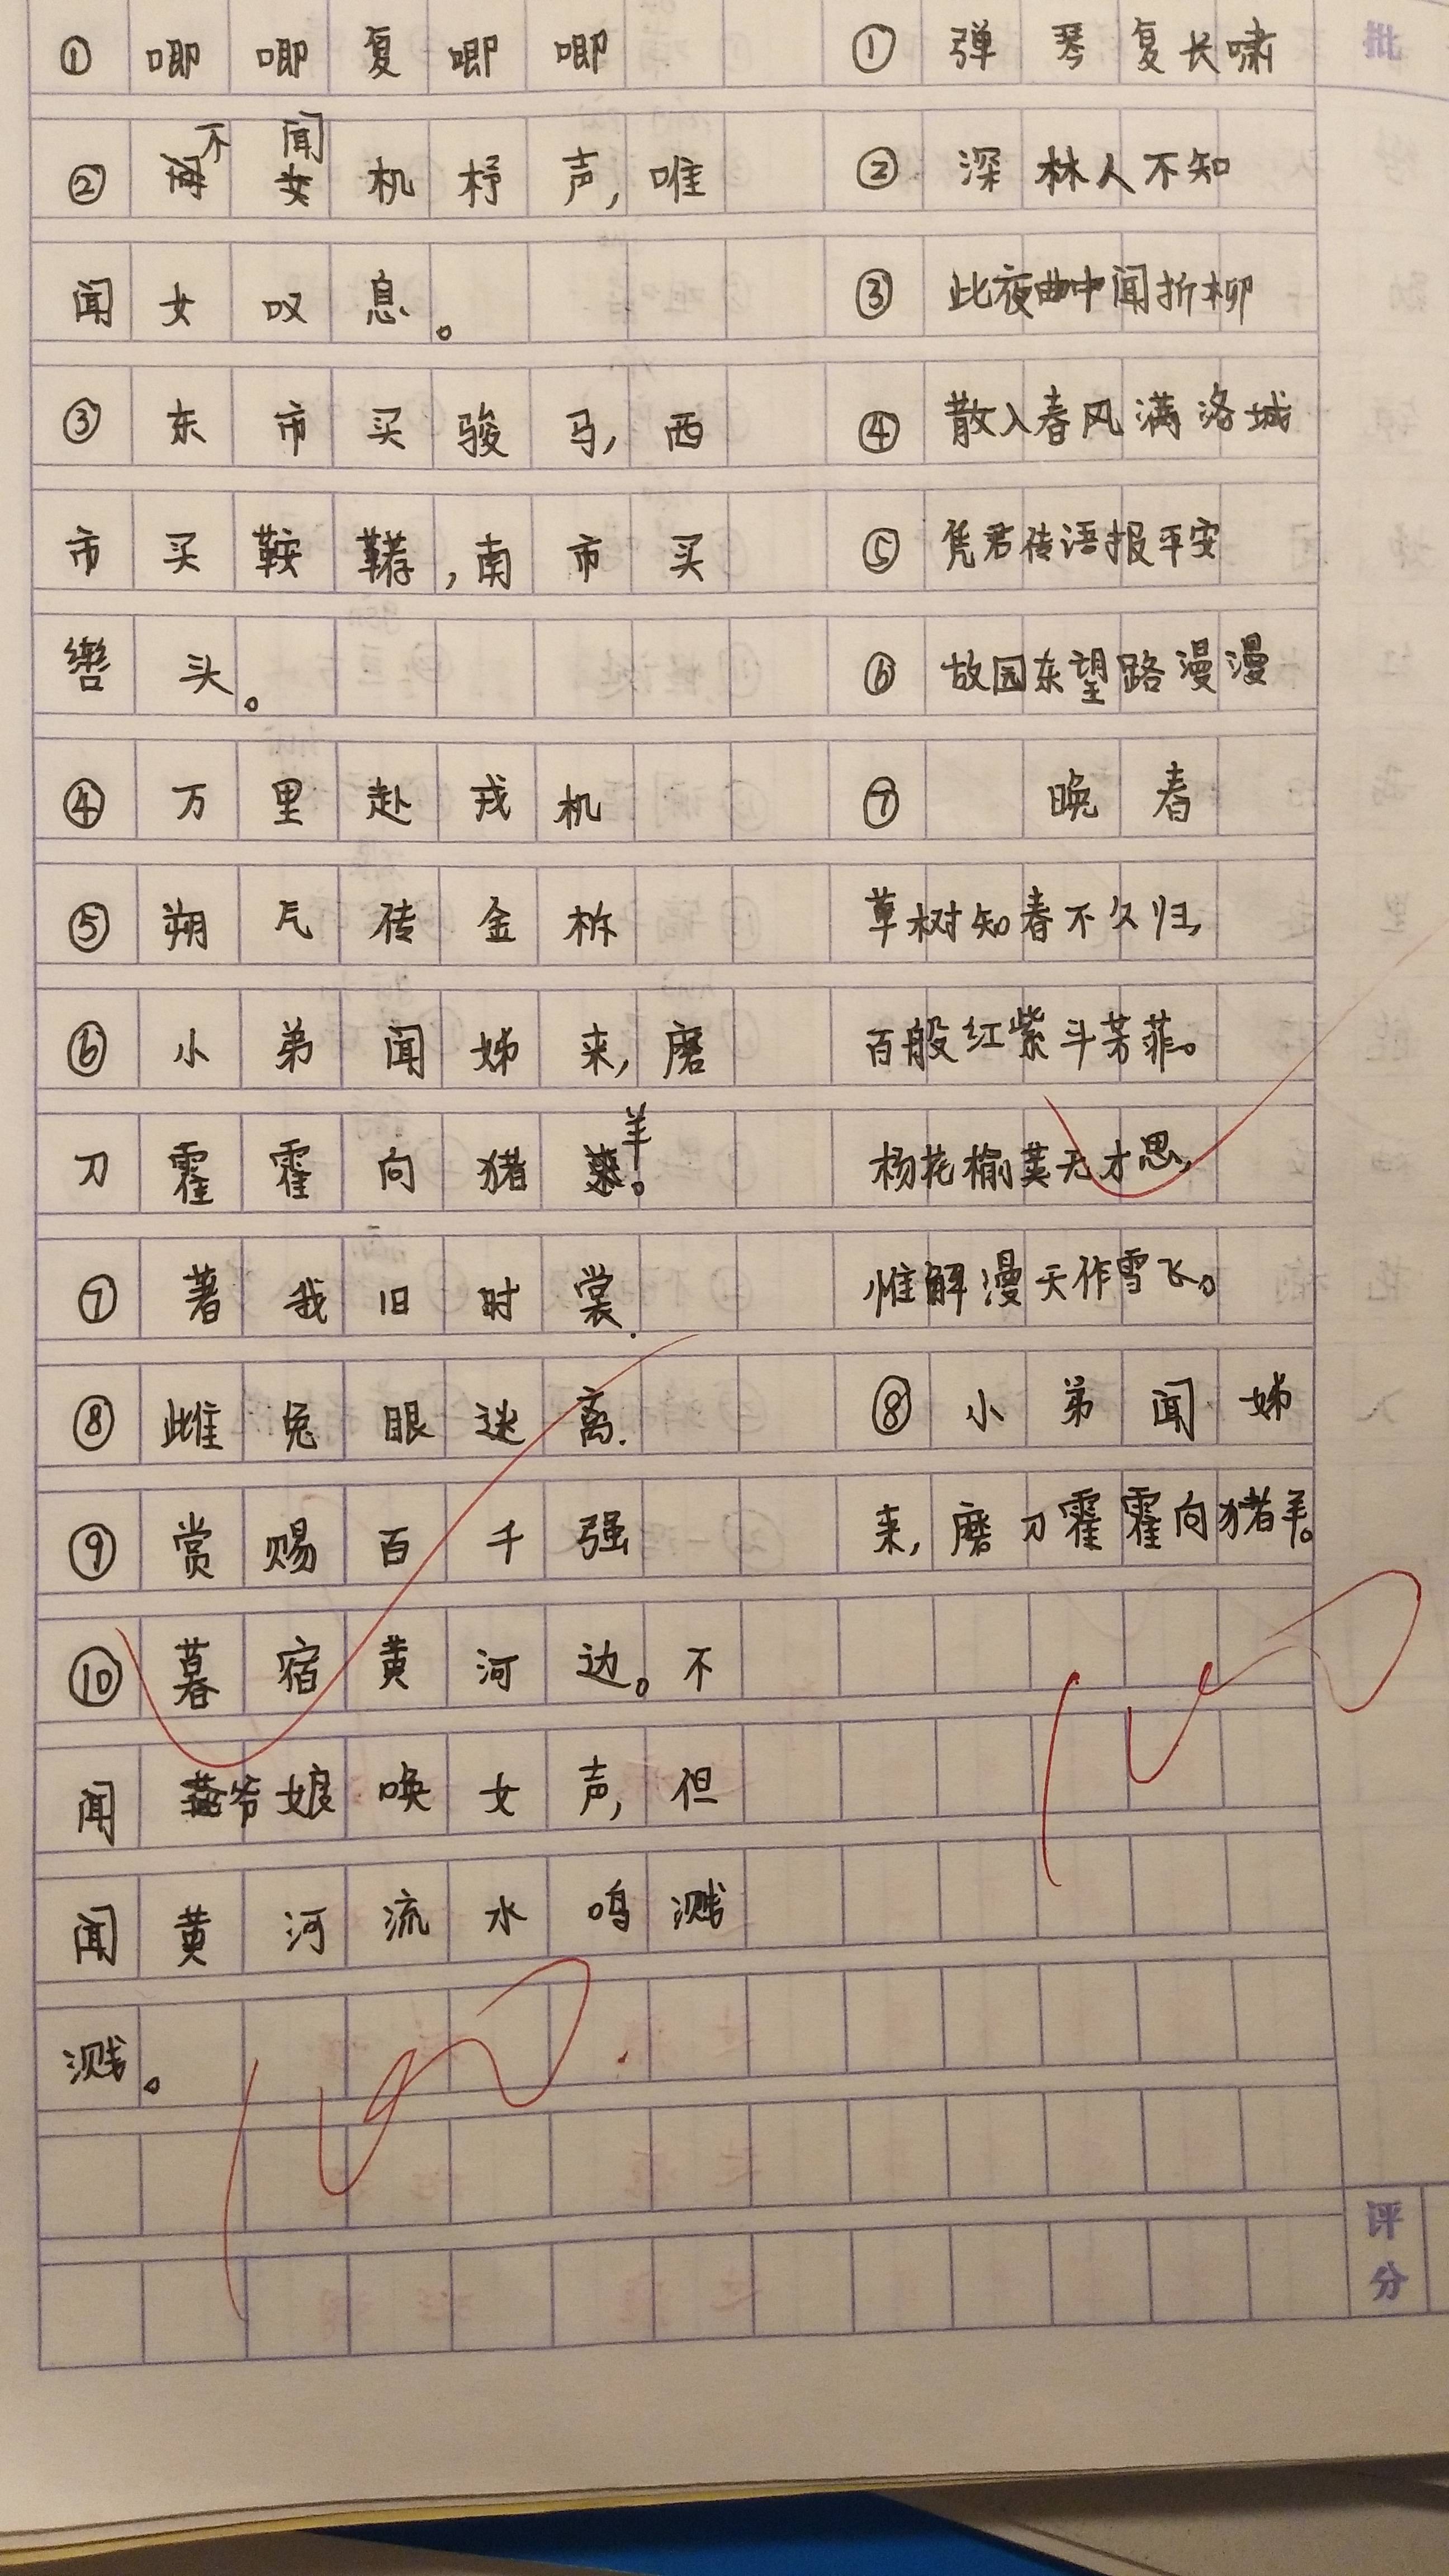 ① 唧唧复唧唧
② 不闻机杼声,唯
闻女叹息。
③ 东市买骏马,西
市买鞍鞯,南市买
辔头。
④ 万里赴戎机
⑤ 朔气传金柝
⑥ 小弟闻姊来,磨
刀霍霍向猪羊。
⑦ 著我旧时裳.
⑧ 雌兔眼迷离.
⑨ 赏赐百千强
⑩ 暮宿黄河边。不
闻爷娘唤女声,但
闻黄河流水鸣溅
溅。
① 弹琴复长啸
② 深林人不知
③ 此夜曲中闻折柳
④ 散入春风满洛城
⑤ 凭君传语报平安
⑥ 故园东望路漫漫
⑦ 晚春
草树知春不久归,
百般红紫斗芳菲。
杨花榆荚无才思,
惟解漫天作雪飞。
⑧ 小弟闻姊
来,磨刀霍霍向猪羊。
批
评
分